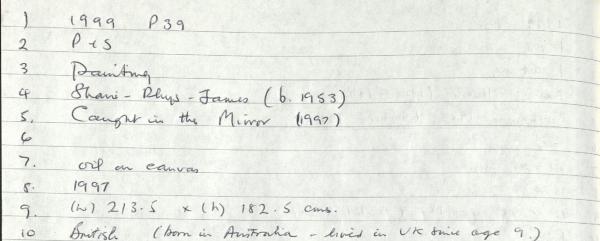 1) 1999 P39
2 P + S
3 Painting
4 Shani-Rhys-James (b. 1953)
5. Caught in the Mirror (1997)
6
7. oil on canvas
8. 1997
9. (w) 213.5 x (h) 182.5 cms.
10 British (born in Australia - lived in UK since age 9.)